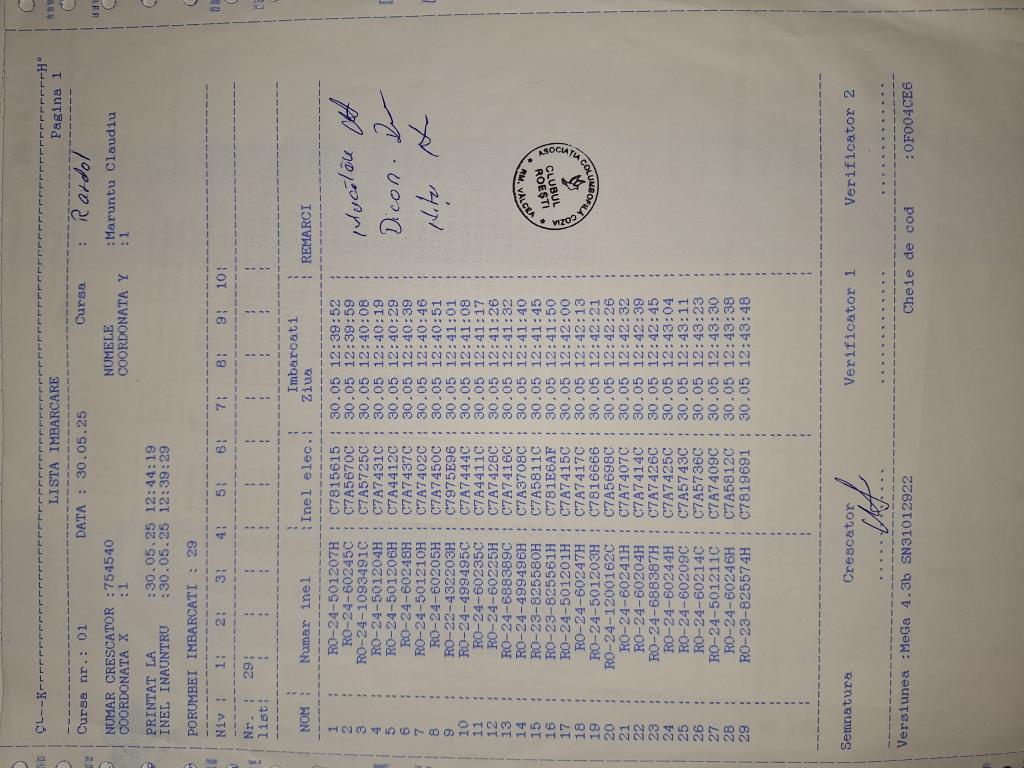 LISTA IMBARCARE Pagina 1
Cursa nr.: 01 DATA : 30.05.25 Cursa :
NUMAR CRESCATOR :754540 NUMELE :Maruntu Claudiu
COORDONATA X :1 COORDONATA Y :1
PRINTAT LA :30.05.25 12:44:19
INEL INAUNTRU :30.05.25 12:39:29
PORUMBEI IMBARCATI : 29
Niv : 1: 2: 3: 4: 5: 6: 7: 8: 9: 10:
Nr. : 29:
list:
NOM : Numar inel :Inel elec.: Imbarcati Ziua REMARCI
1 RO-24-501207H : C7815615 : 30.05 12:39:52
2 RO-24-60245C : C7A5670C : 30.05 12:39:59
3 RO-24-1093491C : C7A5725C : 30.05 12:40:08
4 RO-24-501204H : C7A7431C : 30.05 12:40:19
5 RO-24-501206H : C7A4412C : 30.05 12:40:29
6 RO-24-60248H : C7A7437C : 30.05 12:40:39
7 RO-24-501210H : C7A7402C : 30.05 12:40:46
8 RO-24-60205H : C7A7450C : 30.05 12:40:51
9 RO-22-432203H : C7975E96 : 30.05 12:41:01
10 RO-24-499495C : C7A7444C : 30.05 12:41:08
11 RO-24-60235C : C7A4411C : 30.05 12:41:17
12 RO-24-60225H : C7A7428C : 30.05 12:41:26
13 RO-24-688389C : C7A7416C : 30.05 12:41:32
14 RO-24-499496H : C7A3708C : 30.05 12:41:40
15 RO-23-825580H : C7A5811C : 30.05 12:41:45
16 RO-23-825561H : C781E6AF : 30.05 12:41:50
17 RO-24-501201H : C7A7415C : 30.05 12:42:00
18 RO-24-60247H : C7A7417C : 30.05 12:42:13
19 RO-24-501203H : C7816666 : 30.05 12:42:21
20 RO-24-1200162C : C7A5698C : 30.05 12:42:26
21 RO-24-60241H : C7A7407C : 30.05 12:42:32
22 RO-24-60204H : C7A7414C : 30.05 12:42:39
23 RO-24-688387H : C7A7426C : 30.05 12:42:45
24 RO-24-60244H : C7A7425C : 30.05 12:43:04
25 RO-24-60209C : C7A5743C : 30.05 12:43:11
26 RO-24-60214C : C7A5736C : 30.05 12:43:23
27 RO-24-501211C : C7A7409C : 30.05 12:43:30
28 RO-24-60246H : C7A5812C : 30.05 12:43:38
29 RO-23-825574H : C7819691 : 30.05 12:43:48
ASOCIATIA COLUMBOFILA COZIA
CLUBUL
ROESTI
RM. VALCEA
Semnatura Crescator Verificator 1 Verificator 2
Versiunea :MeGa 4.3b SN31012922 Cheie de cod :0F004CE6